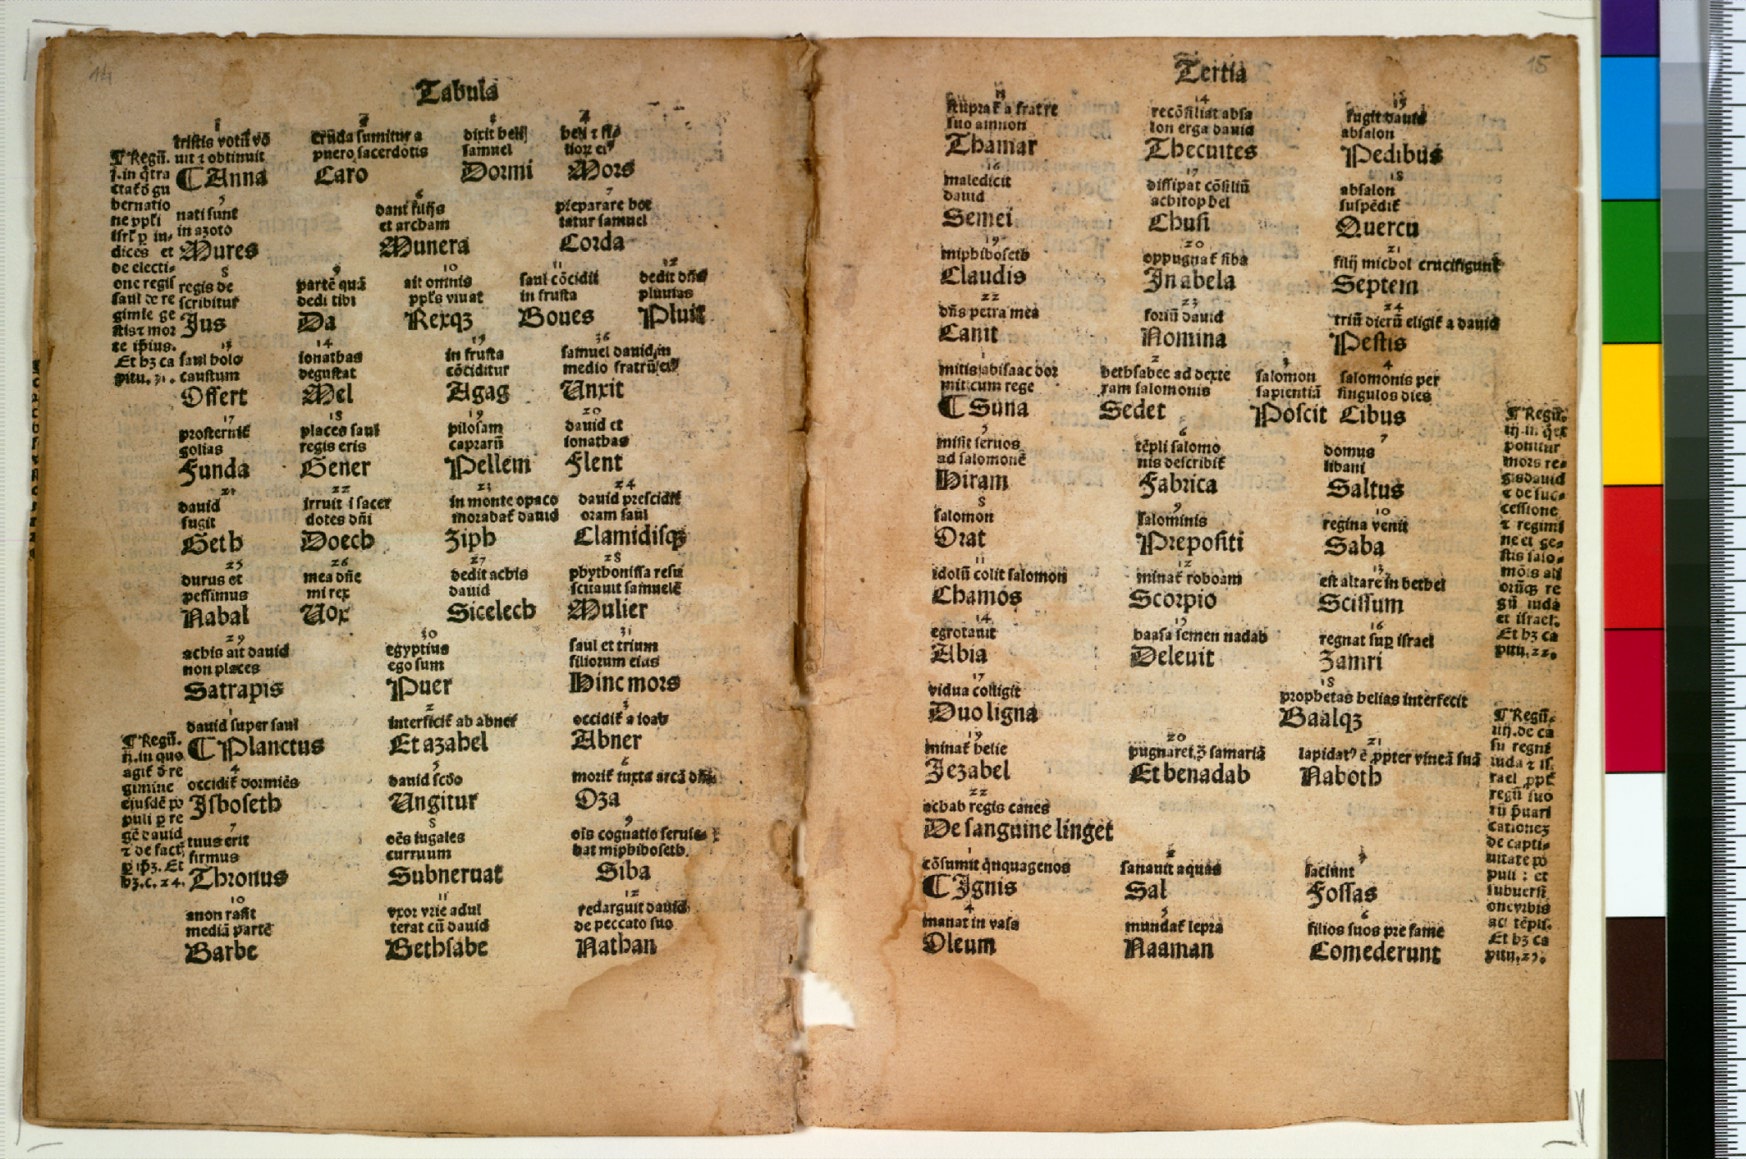 14
Tabula
1 2 3 4
tristis votū vo cruda sumitur a dixit heli heli ⁊
uit ⁊ obtinuit puero sacerdotis samuel
¶ Anna Caro Dormi Mors
5 6 7
nati sunt dant filijs preparare hor
in azoto et archam tatur samuel
Mures Munera Corda
8 9 10 11 12
regis de partē quā ait omnis saul cōcidit dedit dn̄s
scribitur dedi tibi ppl's viuat in frusta pluuias
Jus Da Rexqꝫ Boues Pluit
13 14 15 16
saul holo ionathas in frusta samuel dauid in
caustum degustat cōciditur medio fratrū
Offert Mel Agag Unxit
17 18 19 20
prosternit places saul pilosam dauid et
golias regis eris caprarū ionathas
Funda Gener Pellem Flent
21 22 23 24
dauid irruit i sacer in monte opaco dauid prescidit
fugit dotes dn̄i morabat dauid oram saul
Geth Doech Ziph Clamidisqꝫ
25 26 27 28
durus et mea dn̄e dedit achis phytonissa resu
pessimus mi rex dauid scitauit samuelē
Nabal Uox Sicelech Mulier
29 30 31
achis ait dauid egyptius saul et trium
non places ego sum filiorum eius
Satrapis Puer Hinc mors
1 2 3
dauid super saul interficit ab abner occidit a ioab
¶ Planctus Et azahel Abner
4 5 6
occidit dormiēs dauid scd̄o morit iuxta arcā
Isboseth Ungitur Oza
7 8 9
tuus erit oēs iugales ois cognatio serui
firmus curruum bat miphiboseth
Thronus Subneruat Siba
10 11 12
anon rasit vxor vrie adul redarguit dauid
mediā partē terat cū dauid de peccato suo
Barbe Bethsabe Nathan
¶ Regū.
i. in qͥtra
ctat de gu
bernatio
ne ppl'i
isrl' ꝑ iu-
dices et
de electi-
one regis
saul de re
gimie ge
stis ⁊ mor
te ipsius.
Et hꝫ ca
pitu. 31.
¶ Regū.
ij. in quo
agit de re
gimine
eiusdē po
puli ꝑ re
gē dauid
⁊ de factis
Et
hꝫ. c. 24.
15
Tertia
13 14 15
stuprat a fratre recōsiliat absa fugit dauid
suo amnon lon erga dauid absalon
Thamar Thecuites Pedibus
16 17 18
maledicit dissipat cōsiliū absalon
dauid achitophel suspēdit
Semei Chusi Quercu
19 20 21
miphiboseth oppugnat siba filij michol crucifigunt
Claudis In abela Septem
22 23 24
dn̄s petra mea fortiū dauid triū dierū eligit a dauid
Canit Nomina Pestis
1 2 3 4
mitis abisaac dor bethsabee ad dexte salomon salomonis per
mit cum rege ram salomonis sapientiā singulos dies
¶ Suna Sedet Poscit Cibus
5 6 7
misit seruos tēpli salomo domus
ad salomonē nis describit libani
Hiram Fabrica Saltus
8 9 10
salomon salominis regina venit
Orat Prepositi Saba
11 12 13
idolū colit salomon minat roboam est altare in bethel
Chamos Scorpio Scissum
14 15 16
egrotauit baasa semen nadab regnat suꝑ israel
Abia Deleuit Zamri
17 18
vidua colligit prophetas helias interfecit
Duo ligna Baalqꝫ
19 20 21
minat helie pugnaret samariā lapidat ē ꝓpter vineā suā
Jezabel Et benadab Naboth
22
achab regis canes
De sanguine linget
1 2 3
cōsumit qͥnquagenos sanauit aquas faciunt
¶ Ignis Sal Fossas
4 5 6
manat in vasa mundat lepra filios suos pre fame
Oleum Naaman Comederunt
¶ Regū.
iij. in
ponitur
mors re-
gis dauid
⁊ de suc-
cessione
⁊ regimi
ne et ge-
stis salo-
mōis ali
orūqꝫ re
gū iuda
et israel.
Et hꝫ ca
pitu. 22.
¶ Regū.
iiij. de ca
su regni
iuda ⁊ is
rael ꝓpter
regū suo
rū p̄uari
cationeꝫ
de capti-
uitate po
puli: et
subuersi
one vrbis
ac tēpli.
Et hꝫ ca
pitu. 25.